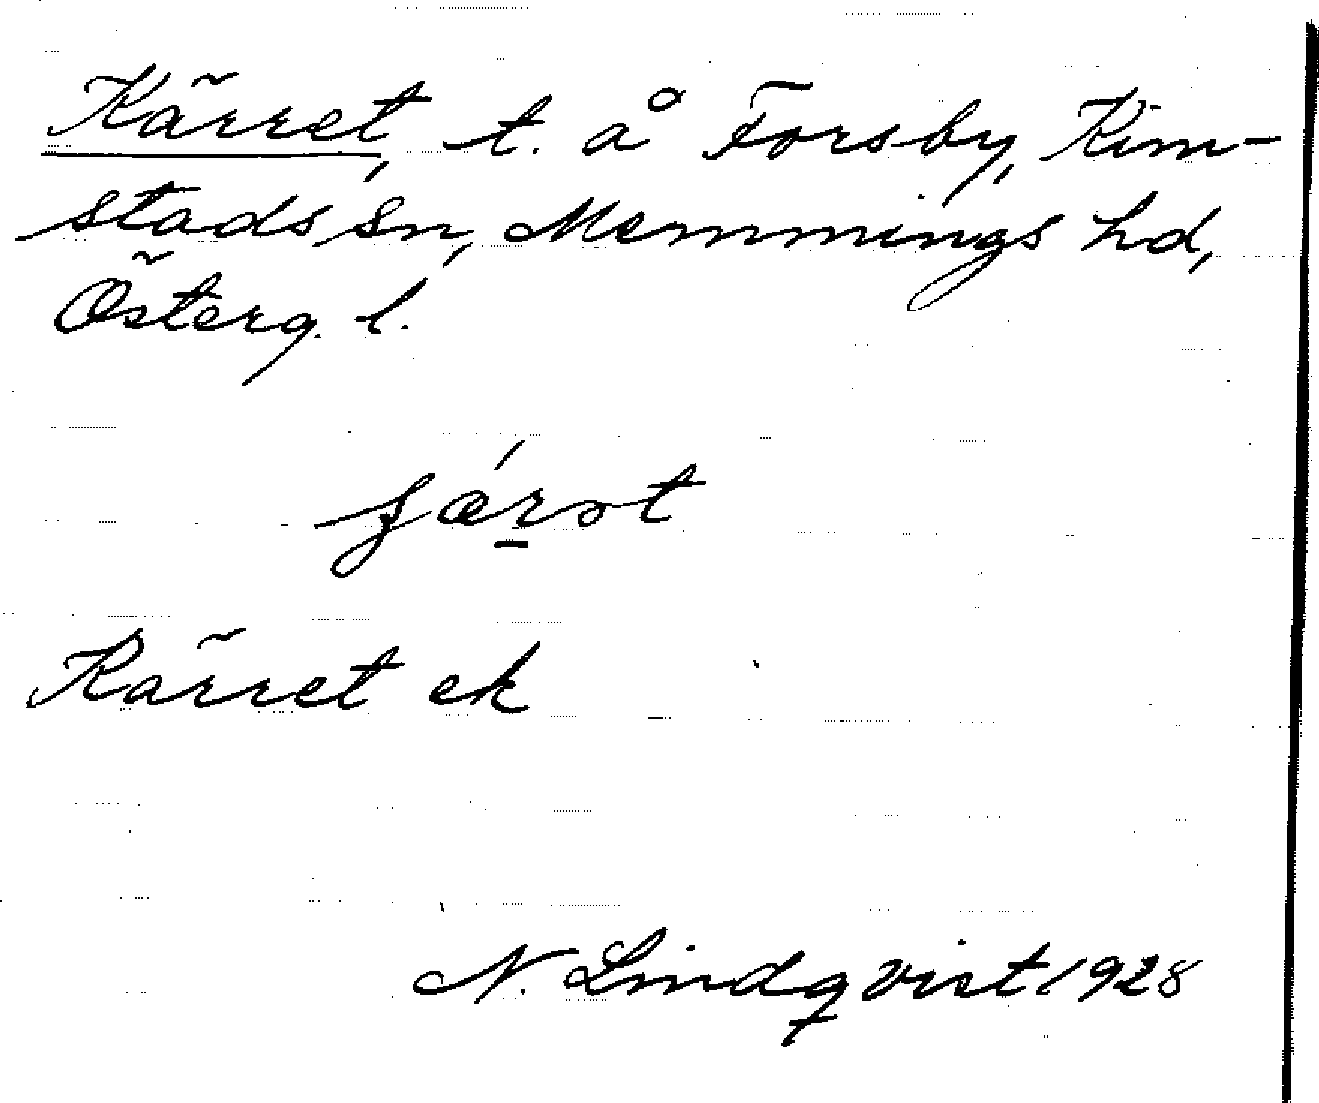 Kärret, t. å Forsby, Kim-
stads sn, Memmings hd,
Österg. l.
Kärret ek
N. Lindqvist 1928